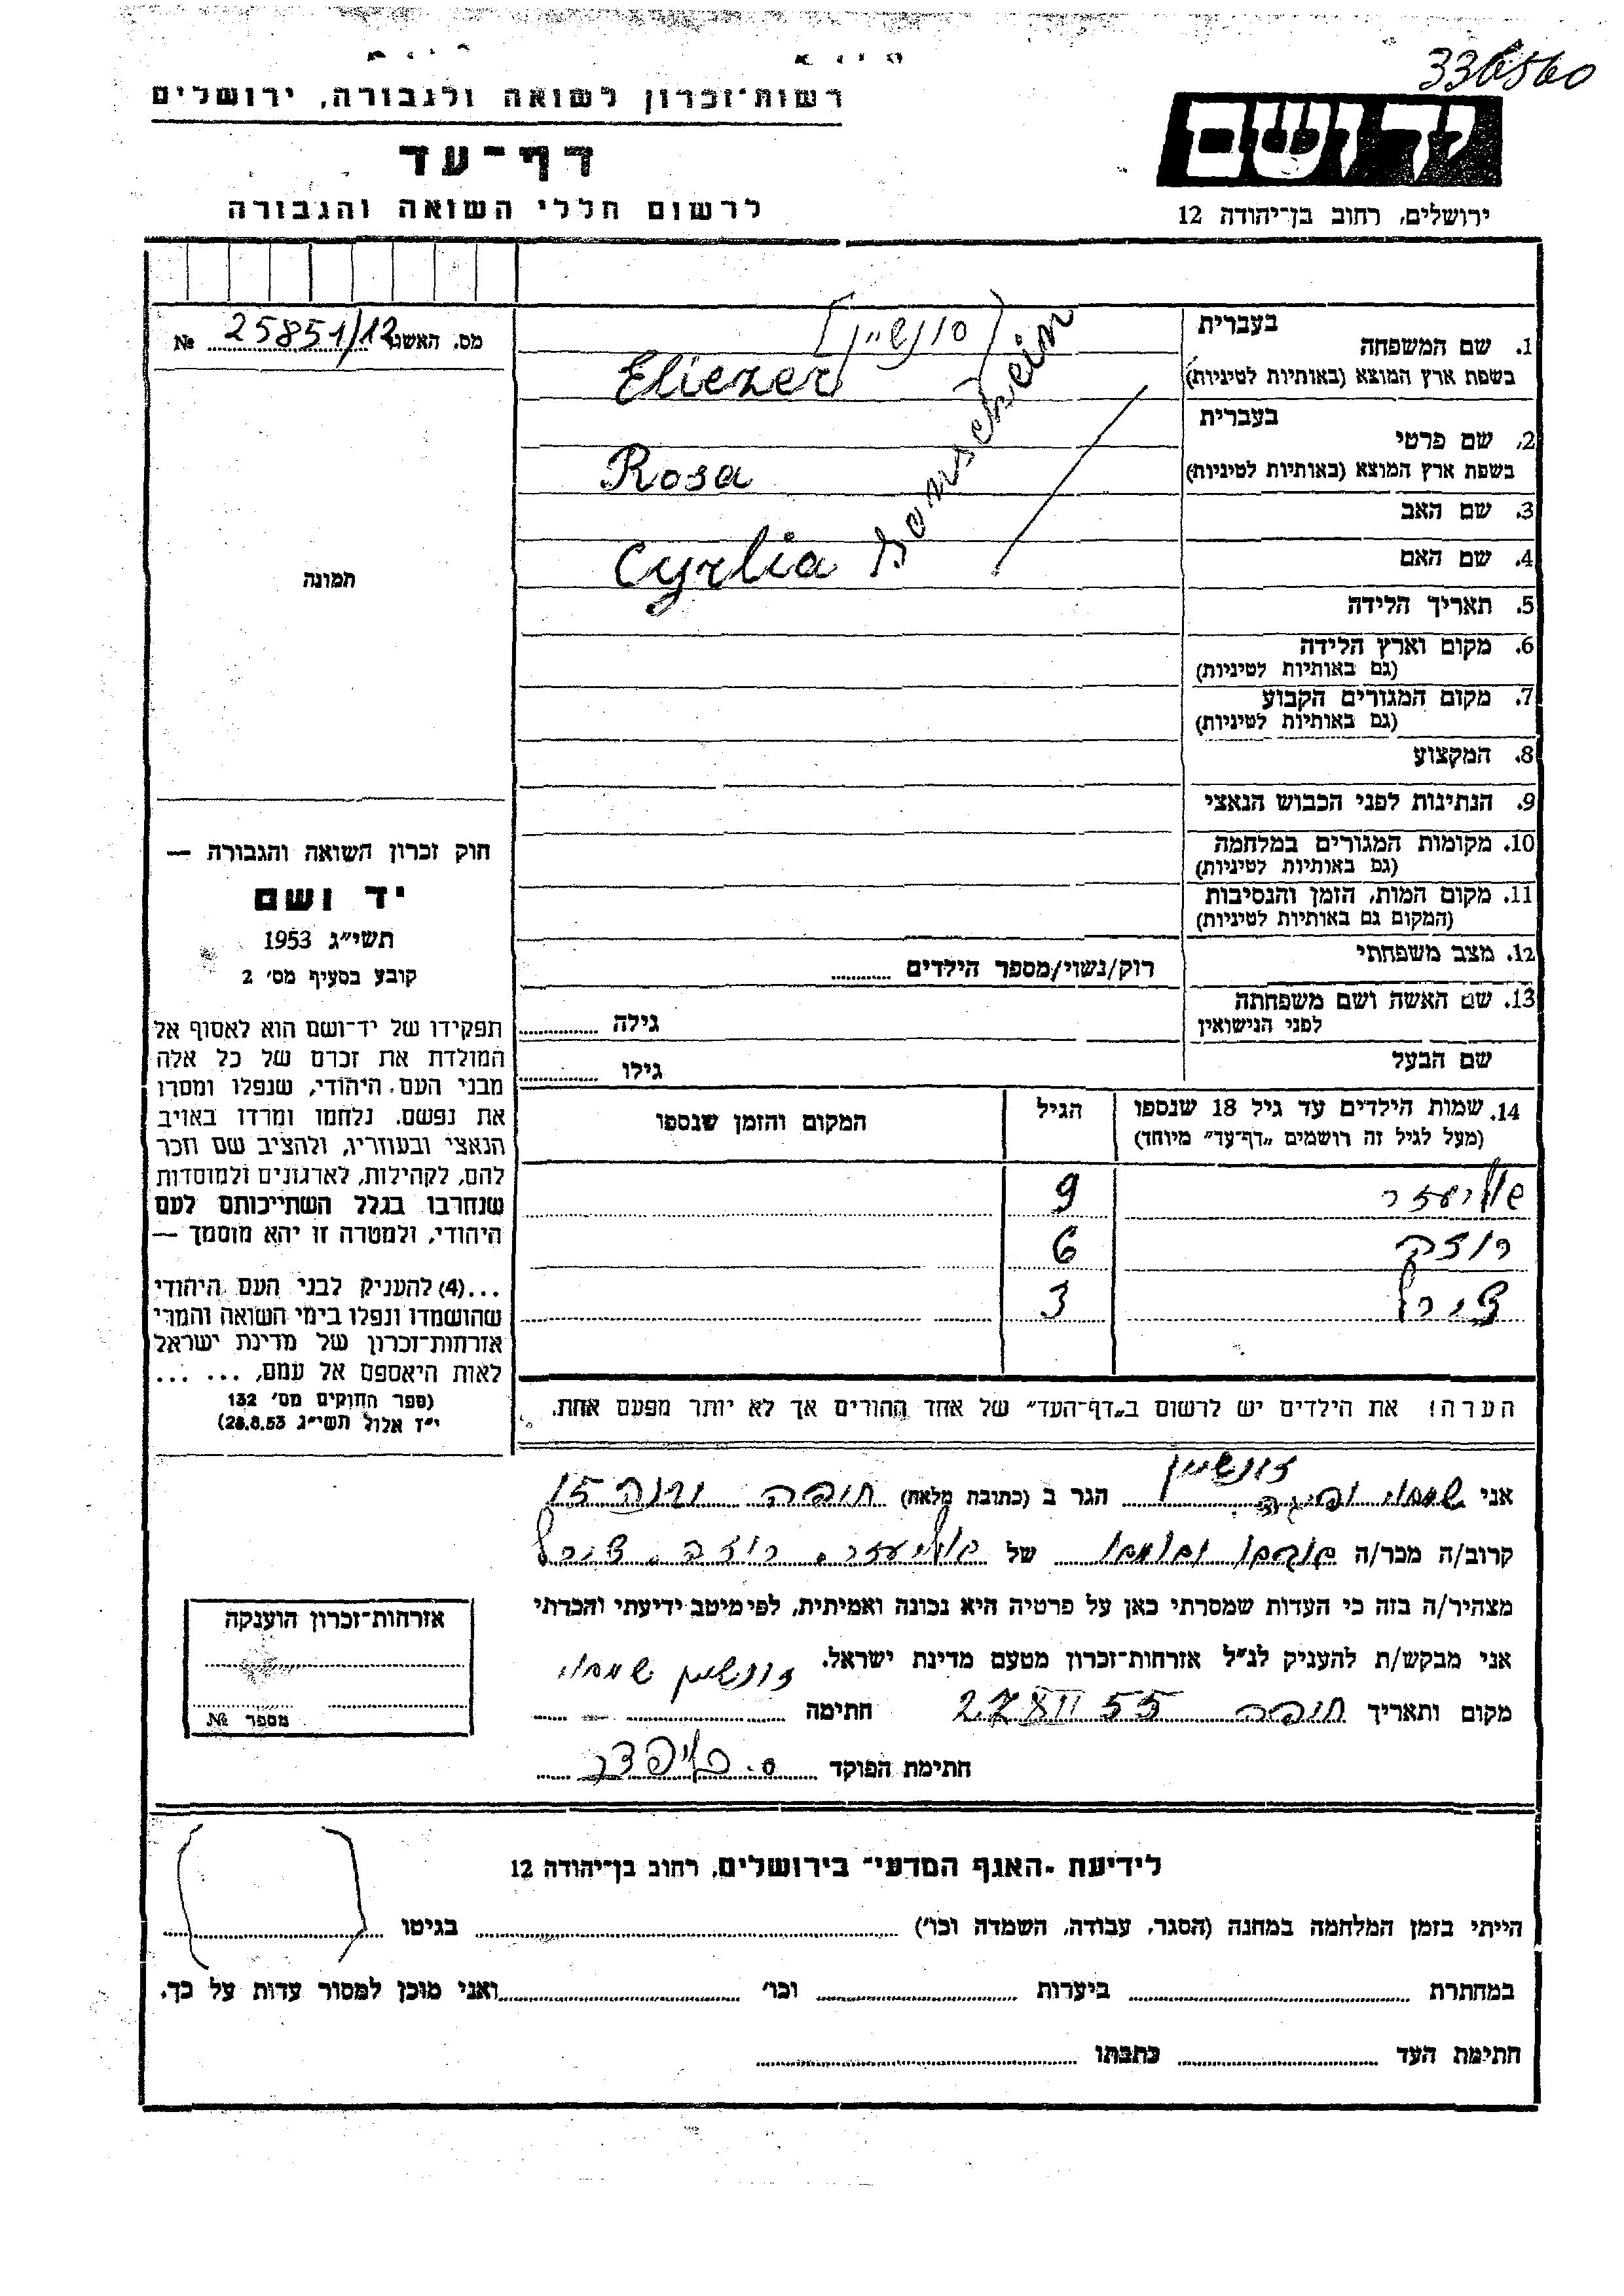 336560
רשות־זכרון לשואה ולגבורה, ירושלים
יד ושם
דף־עד
לרשום חללי השואה והגבורה
ירושלים, רחוב בן־יהודה 12
מס. האשנב 25851/12 №
תמונה
1. שם המשפחה בעברית
[סונשיין]
בשפת ארץ המוצא (באותיות לטיניות)
Eliezer
2. שם פרטי בעברית
בשפת ארץ המוצא (באותיות לטיניות)
Rosa
3. שם האב
4. שם האם
Cyrlia
Sonschein
5. תאריך הלידה
6. מקום וארץ הלידה
(גם באותיות לטיניות)
7. מקום המגורים הקבוע
(גם באותיות לטיניות)
8. המקצוע
9. הנתינות לפני הכבוש הנאצי
10. מקומות המגורים במלחמה
(גם באותיות לטיניות)
11. מקום המות, הזמן והנסיבות
(המקום גם באותיות לטיניות)
12. מצב משפחתי
רוק/נשוי/מספר הילדים
13. שם האשה ושם משפחתה
לפני הנישואין
גילה
שם הבעל
גילו
14. שמות הילדים עד גיל 18 שנספו
(מעל לגיל זה רושמים „דף־עד” מיוחד)
הגיל
המקום והזמן שנספו
אליעזר 9
רוזה 6
צירל 3
הערה! את הילדים יש לרשום ב„דף־העד” של אחד ההורים אך לא יותר מפעם אחת.
חוק זכרון השואה והגבורה —
יד ושם
תשי״ג 1953
קובע בסעיף מס׳ 2
תפקידו של יד־ושם הוא לאסוף אל
המולדת את זכרם של כל אלה
מבני העם היהודי, שנפלו ומסרו
את נפשם, נלחמו ומרדו באויב
הנאצי ובעוזריו, ולהציב שם וזכר
להם, לקהילות, לארגונים ולמוסדות
שנחרבו בגלל השתייכותם לעם
היהודי, ולמטרה זו יהא מוסמך —
...(4) להעניק לבני העם היהודי
שהושמדו ונפלו בימי השואה והמרי
אזרחות־זכרון של מדינת ישראל
לאות היאספם אל עמם, ... ...
(ספר החוקים מס׳ 132
י״ז אלול תשי״ג 28.8.53)
זונשיין
אני הגר ב (כתובת מלאה) חיפה 15
קרוב/ה מכר/ה של אליעזר, רוזה, צירל
מצהיר/ה בזה כי העדות שמסרתי כאן על פרטיה היא נכונה ואמיתית, לפי מיטב ידיעתי והכרתי
אני מבקש/ת להעניק לנ״ל אזרחות־זכרון מטעם מדינת ישראל.
מקום ותאריך חיפה 27 XII 55 חתימה זונשיין
חתימת הפוקד
אזרחות־זכרון הוענקה
מספר №
לידיעת „האגף המדעי” בירושלים, רחוב בן־יהודה 12
הייתי בזמן המלחמה במחנה (הסגר, עבודה, השמדה וכו׳) בגיטו
במחתרת ביערות וכו׳ ואני מוכן למסור עדות על כך.
חתימת העד כתבתו